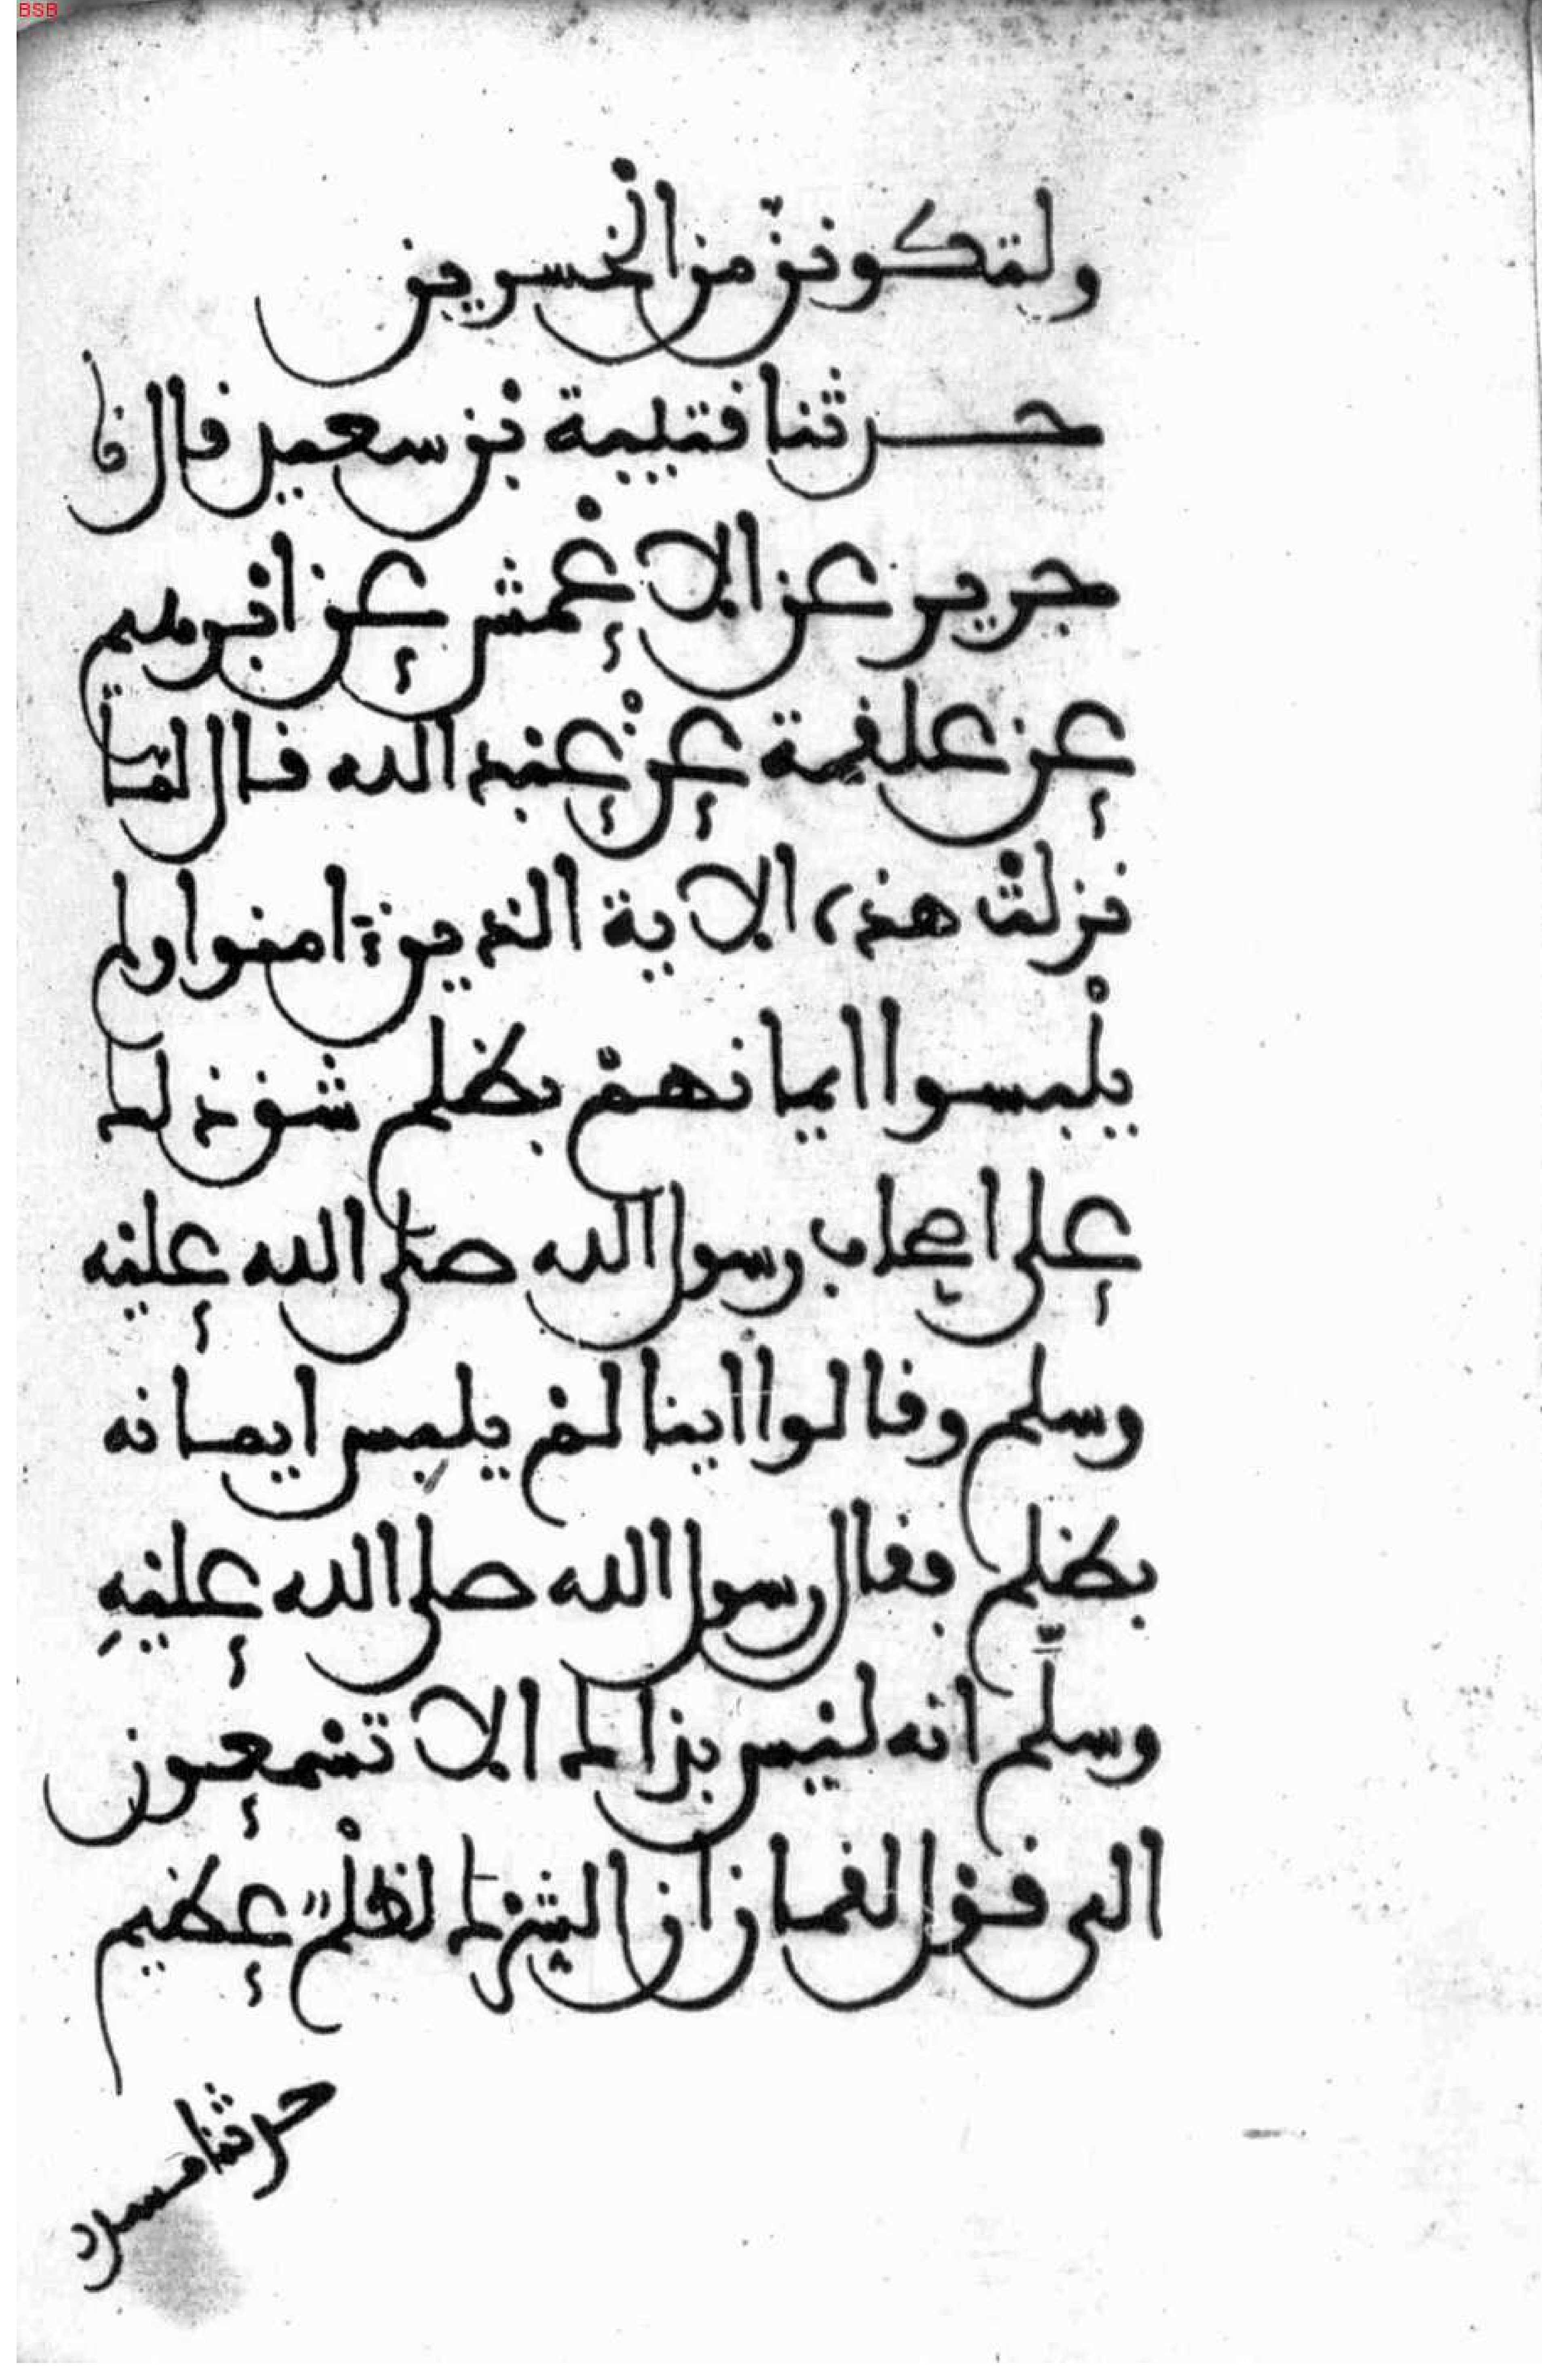 BSB
ولتكونن من الخسرين
حدثنا قتيبة بن سعيد قال نا
جرير عن الاعمش عن ابرهيم
عن علقمة عن عبد الله قال لما
نزلت هذه الاية الذين امنوا ولم
يلبسوا ايمانهم بظلم شق ذلك
على اصحاب رسول الله صلى الله عليه
وسلم وقالوا اينا لم يلبس ايمانه
بظلم فقال رسول الله صلى الله عليه
وسلم انه ليس بذاك الا تسمعون
الى قول لقمان ان الشرك لظلم عظيم
حدثنا مسدد